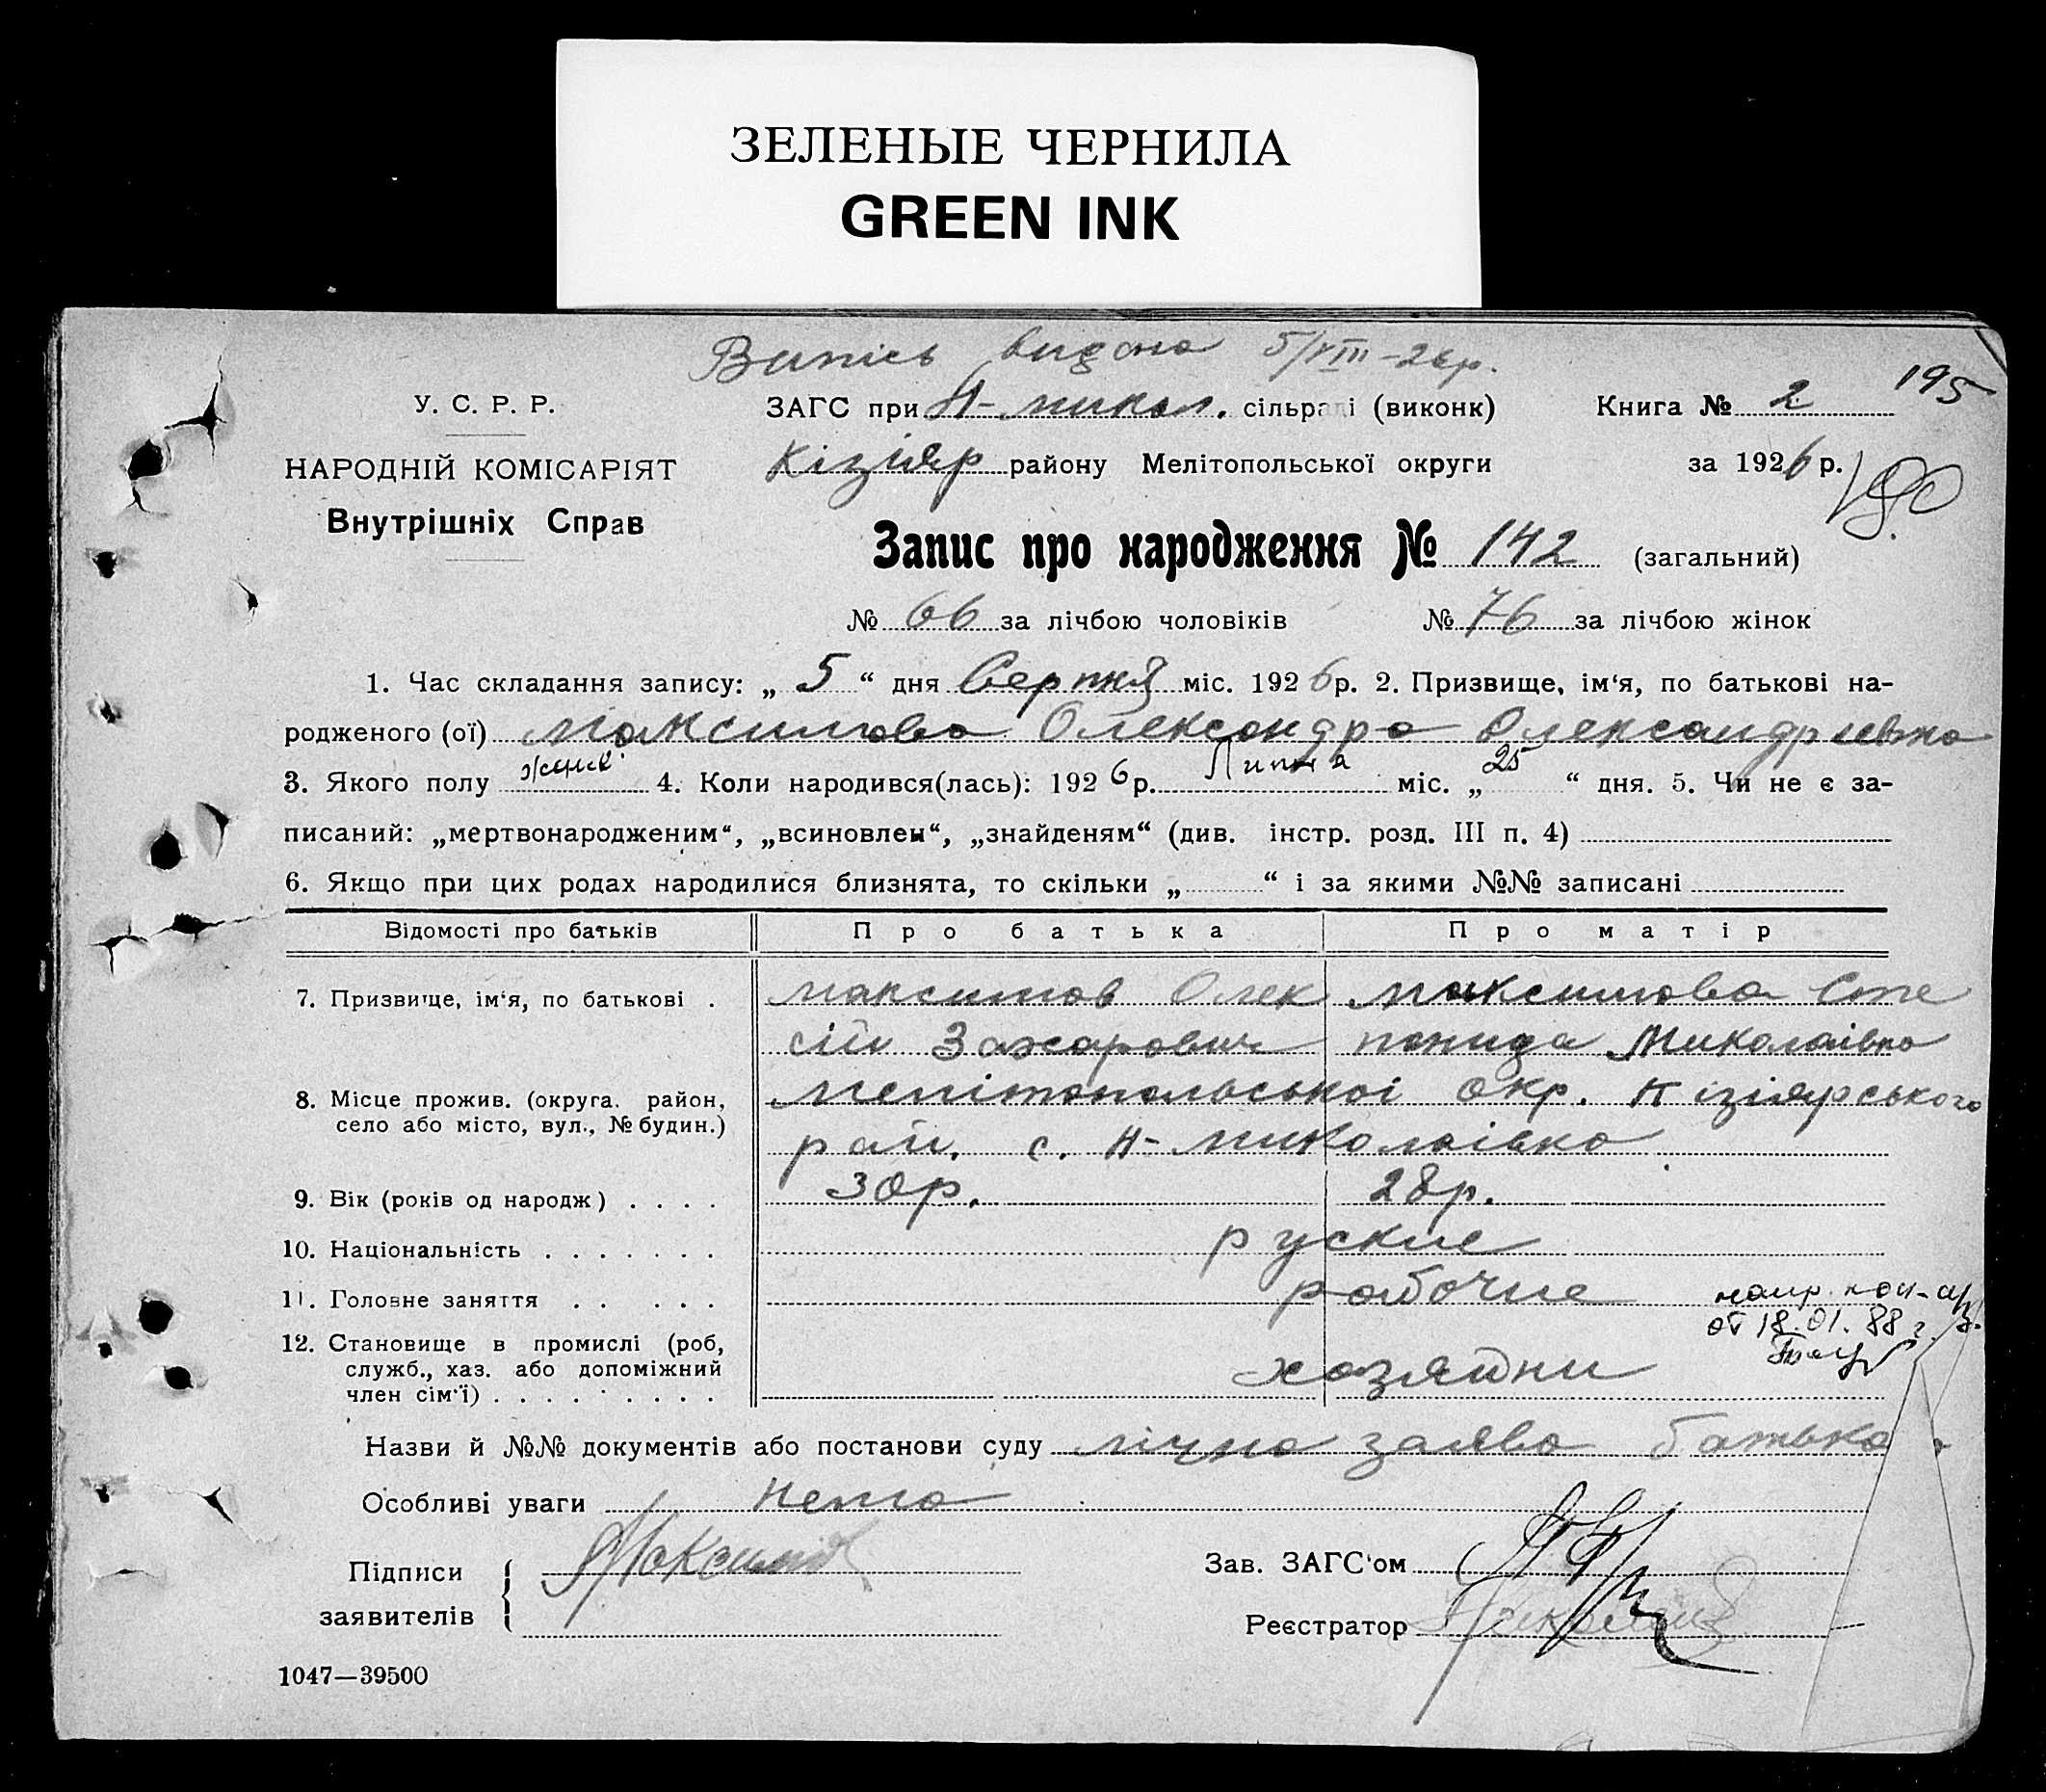 ЗЕЛЕНЫЕ ЧЕРНИЛА
GREEN INK
Випісь видана 5/VIII-26р.
195
У. С. Р. Р.
ЗАГС при Н-микол. сільраді (виконк)
Книга № 2
НАРОДНІЙ КОМІСАРІЯТ
Кізіяр району Мелітопольської округи
за 1926 р.
Внутрішніх Справ
Запис про народження № 142 (загальний)
№ 66 за лічбою чоловіків
№ 76 за лічбою жінок
1. Час складання запису: „ 5 “ дня Серпня міс. 1926 р. 2. Призвище, ім‘я, по батькові на-
родженого (ої) Максимова Олександра Олександрівна
3. Якого полу жіноч. 4. Коли народився(лась): 1926 р. Липня міс. „ 25 “ дня. 5. Чи не є за-
писаний: „мертвонародженим“, „всиновлен“, „знайденям“ (див. інстр. розд. III п. 4)
6. Якщо при цих родах народилися близнята, то скільки „ “ і за якими №№ записані
Відомості про батьків
Про батька
Про матір
7. Призвище, ім‘я, по батькові .
Максимов Олек
сій Захарович
Максимова Сте
понида Миколаівна
8. Місце прожив. (округа. район,
село або місто, вул., № будин.)
Мелітопольськоі окр. Кізіярського
рай. с. Н-Миколаівка
9. Вік (років од народж) . . . .
30р.
28р.
10. Національність . . . . . . .
руские
11. Головне заняття . . . . .
робочие
от 18.01.88 г.
12. Становище в промислі (роб,
служб., хаз. або допоміжний
член сім‘ї) . . . . . . . .
хозяйни
Назви й №№ документів або постанови суду лічна заява батька
Особливі уваги Нема
Підписи
заявителів
Максимов
Зав. ЗАГС‘ом
Реєстратор
1047—39500